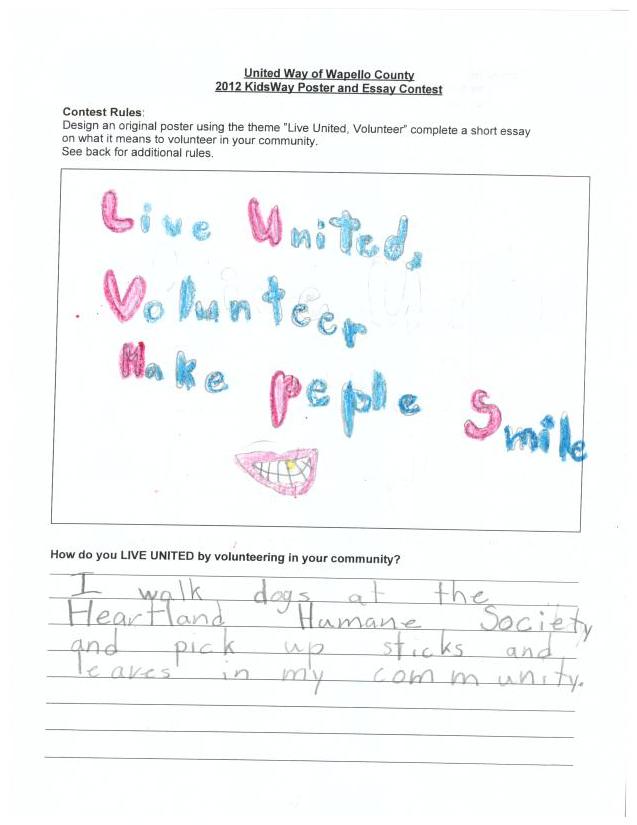 United Way of Wapello County
2012 KidsWay Poster and Essay Contest
Contest Rules:
Design an original poster using the theme "Live United, Volunteer" complete a short essay
on what it means to volunteer in your community.
See back for additional rules.
Live United,
Volunteer
Make Peple Smile
How do you LIVE UNITED by volunteering in your community?
I walk dogs at the
Heartland Humane Society
and pick up sticks and
leaves in my community.